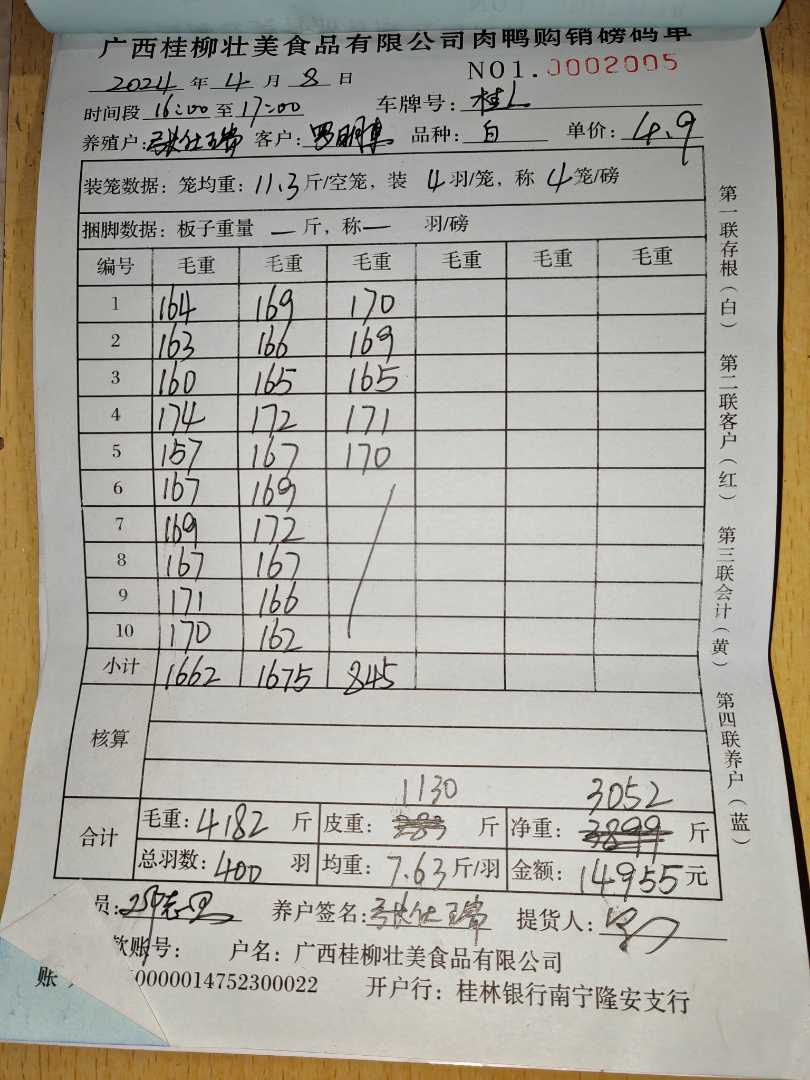 广西桂柳壮美食品有限公司肉鸭购销磅码单
2024 年 4 月 8 日 NO1.0002005
时间段 16:00 至 17:00 车牌号: 桂L
养殖户: 张仕瑞 客户: 罗明 品种: 白 单价: 4.9
装笼数据: 笼均重: 11.3 斤/空笼, 装 4 羽/笼, 称 4 笼/磅
捆脚数据: 板子重量 — 斤, 称 — 羽/磅
编号 毛重 毛重 毛重 毛重 毛重 毛重
1 164 169 170
2 163 166 169
3 160 165 165
4 174 172 171
5 157 167 170
6 167 169
7 169 172
8 167 167
9 171 166
10 170 162
小计 1662 1675 845
核算
1130 3052
合计 毛重: 4182 斤 皮重: 283 斤 净重: 3899 斤
总羽数: 400 羽 均重: 7.63 斤/羽 金额: 14955 元
员: 养户签名: 张仕瑞 提货人:
款账号: 户名: 广西桂柳壮美食品有限公司
账 0000014752300022 开户行: 桂林银行南宁隆安支行
第一联存根(白) 第二联客户(红) 第三联会计(黄) 第四联养户(蓝)